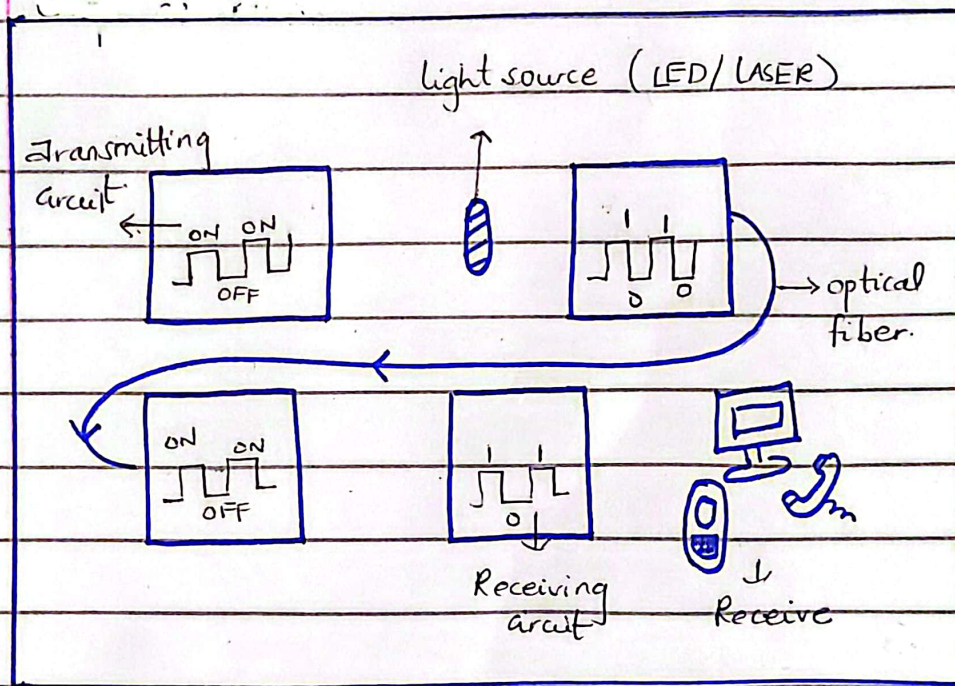 light source (LED/LASER)
Transmitting
circuit
ON ON
OFF
1 1
0 0
optical
fiber.
ON ON
OFF
1 1
0
Receiving
circuit
Receive